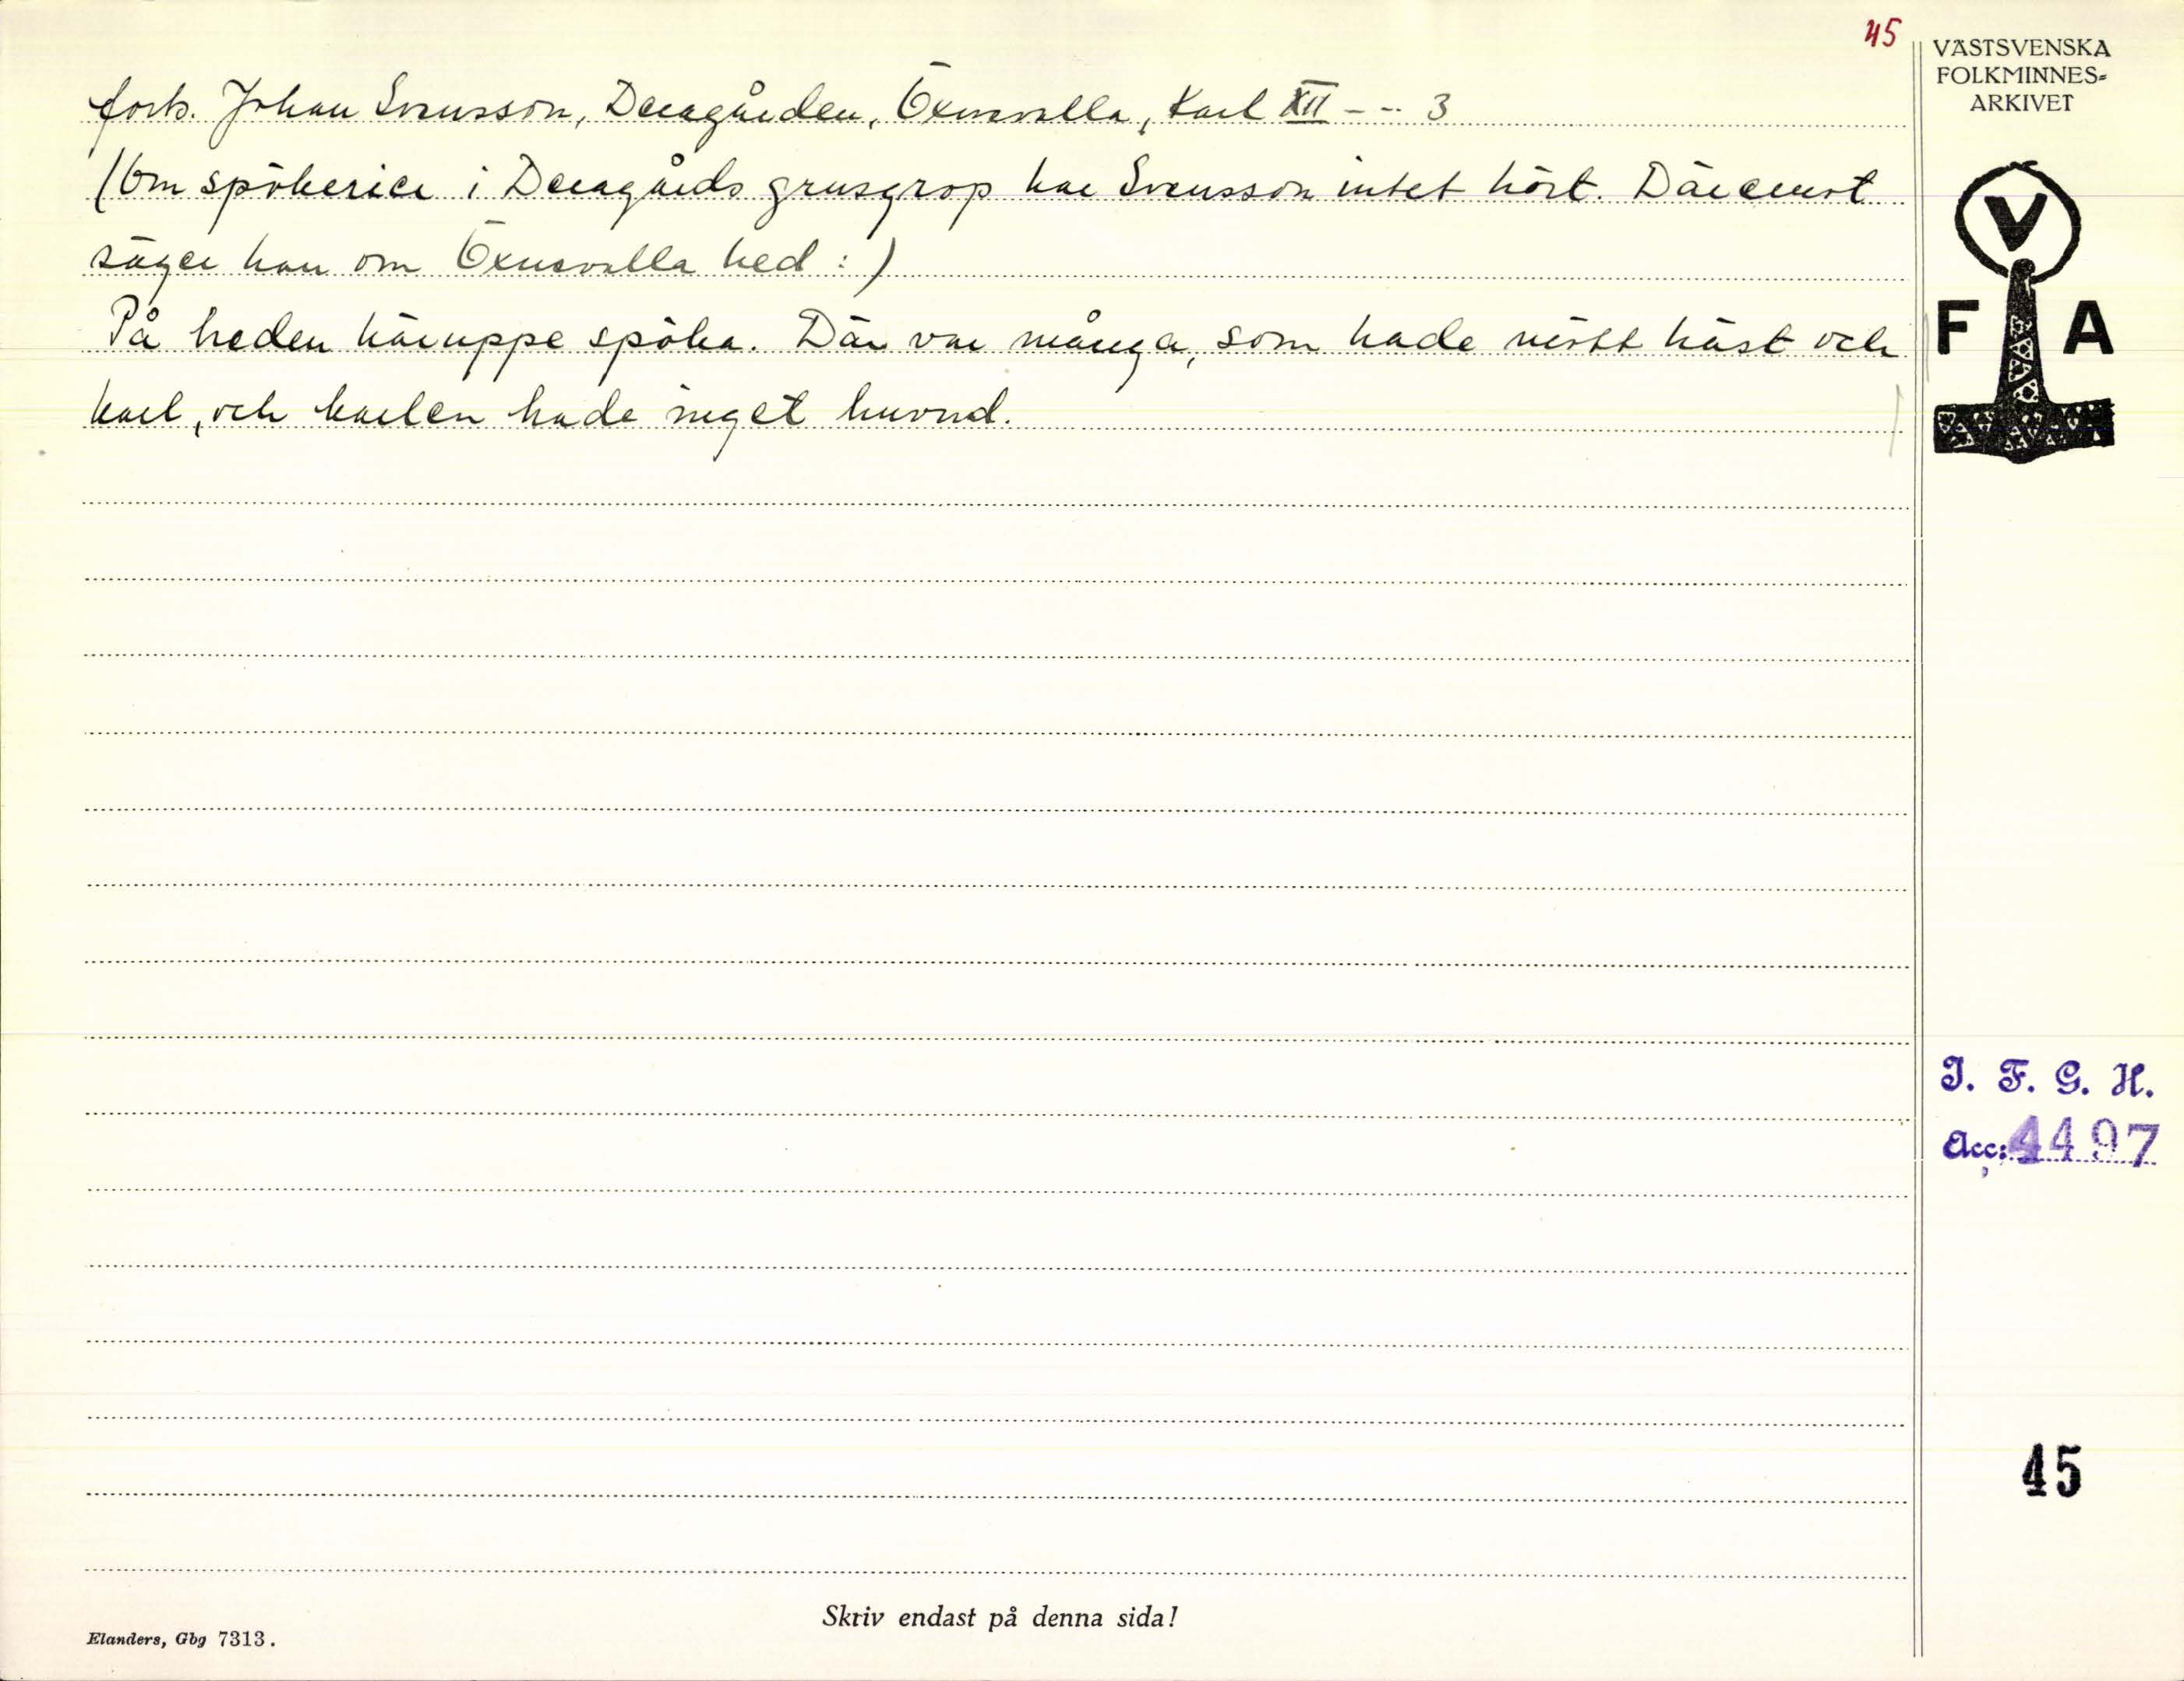 45
forts. Johan Svensson, Deragården, Öxnevalla, Karl XII - - 3
(Om spökerier i Deragårds grusgrop har Svensson intet hört. Däremot
säger han om Öxnevalla hed :)
På heden häruppe spöka. Där var många, som hade mött häst och
karl, och karlen hade inget huvud.
VÄSTSVENSKA
FOLKMINNES=
ARKIVET
V
F A
I. F. G. H.
Acc: 4497
45
Skriv endast på denna sida!
Elanders, Gbg 7313.